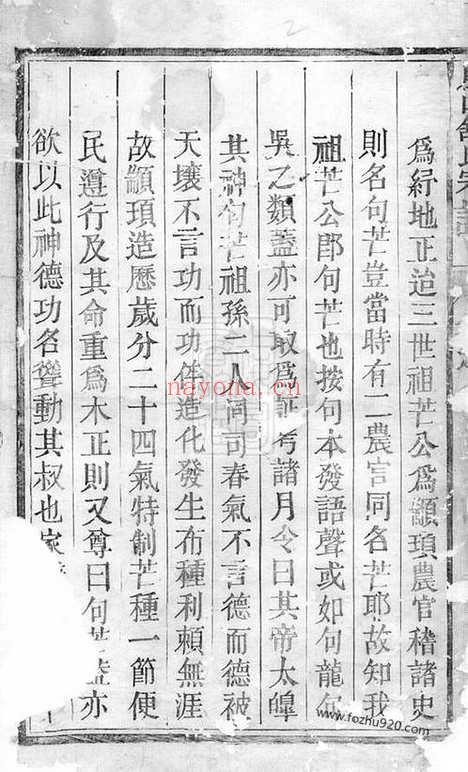 爲紆地正迨三世祖芒公爲顓頊農官稽諸史
則名句芒豈當時有二農官同名芒耶故知我
祖芒公郎句芒也按句本發語聲或如句龍句
吳之類蓋亦可取爲証考諸月令曰其帝太皞
其神句芒祖孫二人同司春氣不言德而德被
天壤不言功而功侔造化發生布種利賴無涯
故顓頊造歷歲分二十四氣特制芒種一節便
民遵行及其命重爲木正則又尊曰句芒蓋亦
欲以此神德功名聳動其叔也家
nayona.cn
www.fozhu920.com